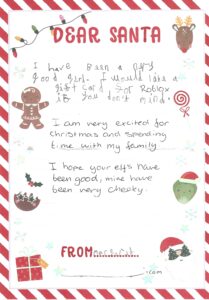 DEAR SANTA
I have been a
good girl. I would like a
gift card for Roblox
if you don't mind.
I am very excited for
christmas and spending
time with my family
I hope your elfs have
been good, mine have
been very cheeky.
FROM
.com